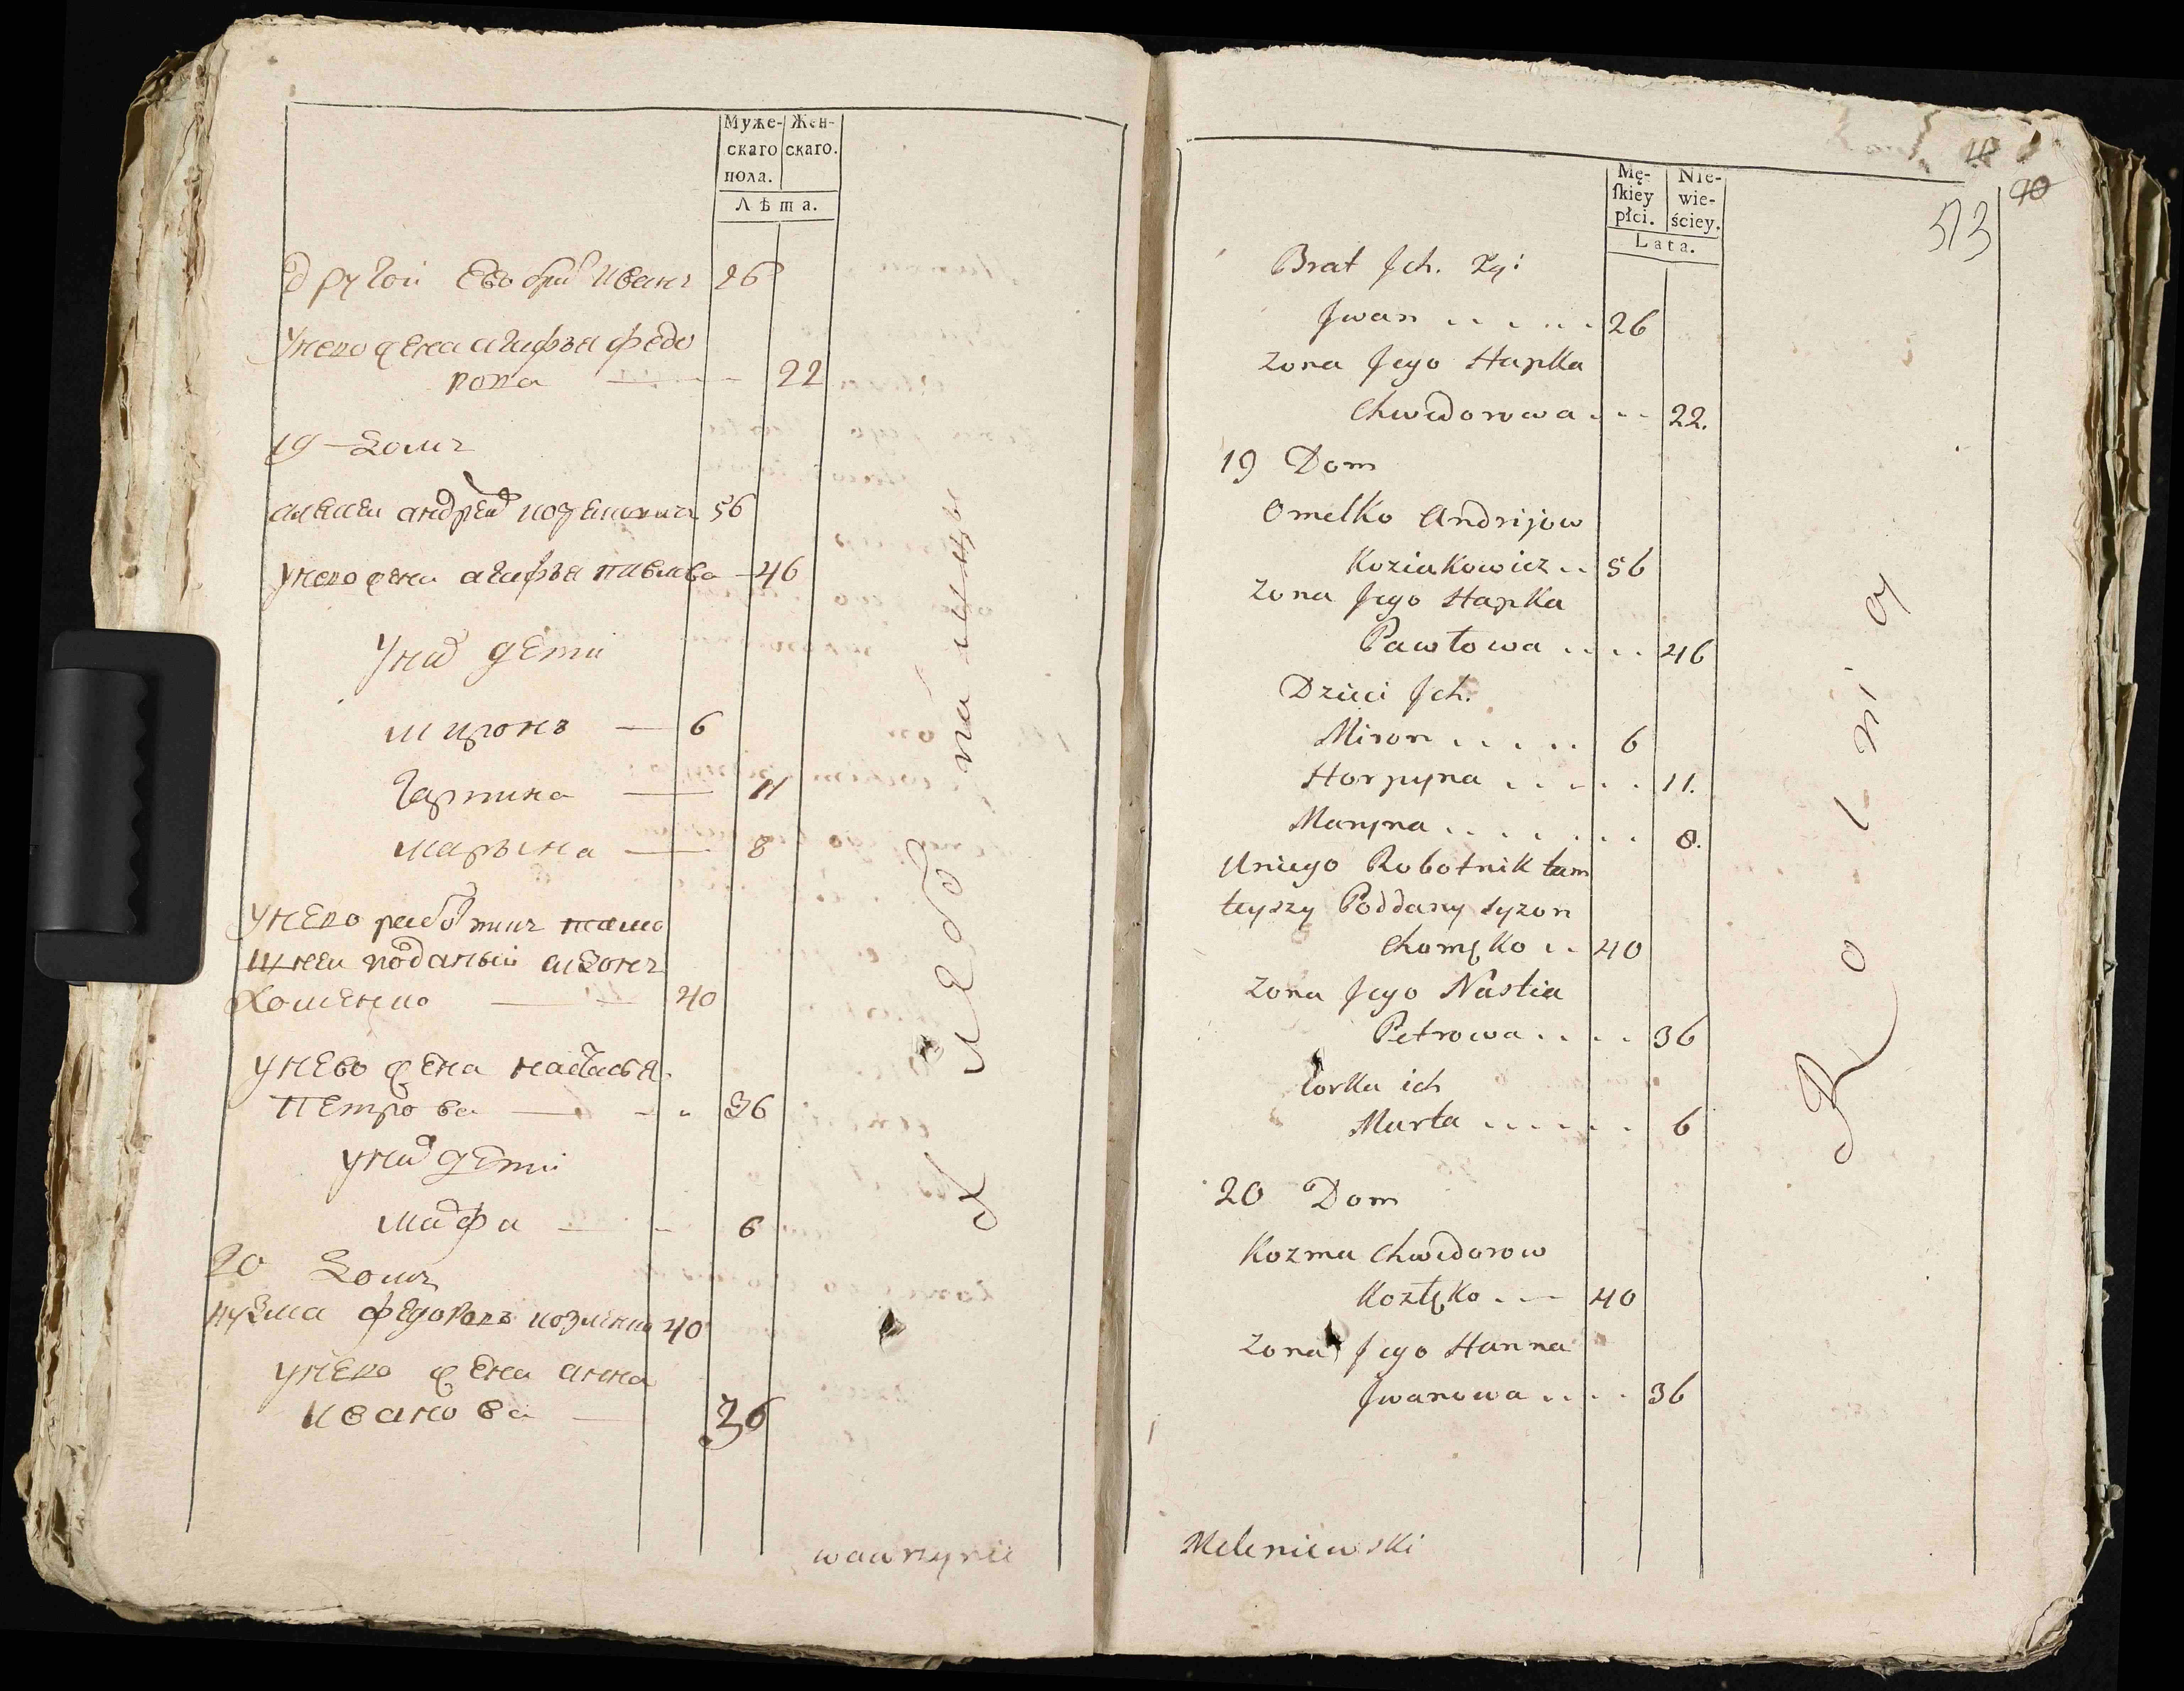 Муже- Жен-
скаго скаго.
пола.
Лѣта.
другой ево брат Иванъ 26
У нево жена агафья федо
рова 22
19 Домъ
андрей 56
у нево жена агафья павлова 46
У них дети
миронъ 6
Гарпина 11
марьина 8
у нево работник тамо
шней подданый
Хоменко 40
у нево жена настасья
петрова 36
у них дети
марфа 6
20 Домъ
кузма федоровъ козленко 40
у нево жена анна
иванова 36
wawrzynic
Mę- Nie-
ſkiey wie-
płci. ściey.
Lata.
40
513
Brat Jch. 2gi
Jwan . . . . . . 26
Zona Jego Hapka
Chwedorowa . . . 22.
19 Dom
Omelko Andrijow
Koziakowicz . . 56
Zona Jego Hapka
Pawłowa . . . . 46
Dzieci Jch.
Miron . . . . . 6
Horpyna . . . . . 11.
Maryna . . . . . . . 8.
Uniego Robotnik tam
teyszy Poddany Syzon
Chomęko . . 40
Zona Jego Nastia
Petrowa . . . . 36
Corka ich
Marta . . . . . . 6
20 Dom
Kozma Chwedorow
Kozłęko . . — 40
Zona Jego Hanna
Jwanowa . . . . 36
Rolnicy
Meleniewski